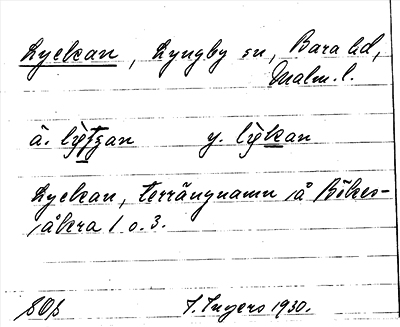 Lyckan, Lyngby sn, Bara hd,
Malm. l.
ä. lỳtʒan y. lỳkan
Lyckan, terrängnamn på Bökes-
åkra 1 o. 3.
I. Ingers 1930.